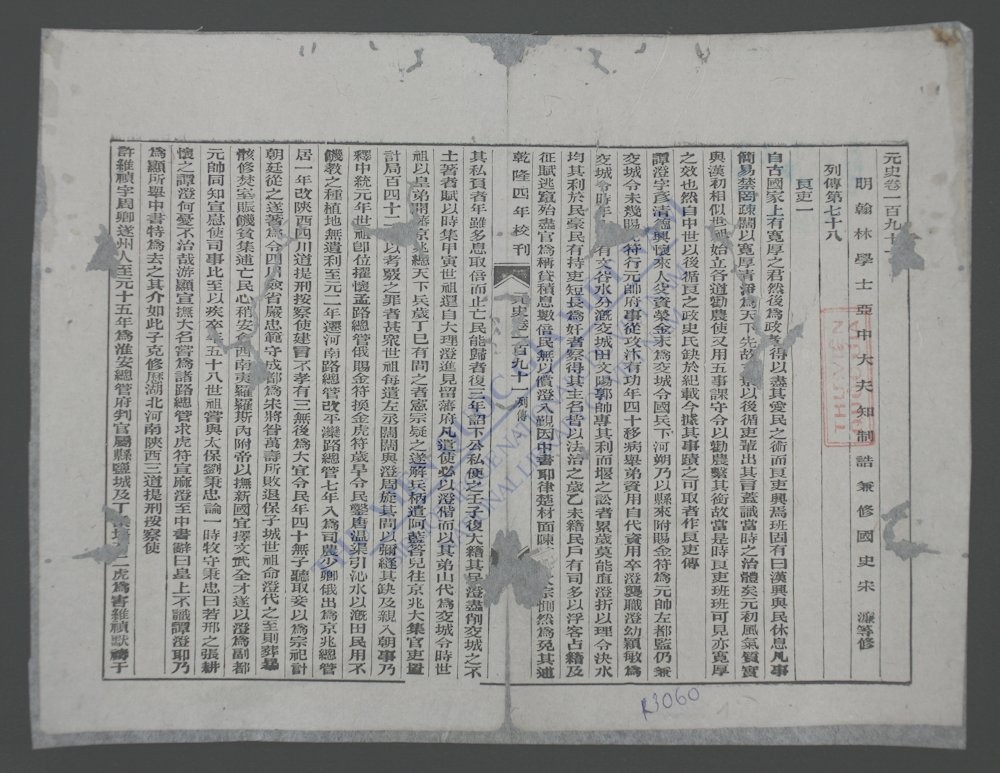 元史卷一百九十一
明翰林學士亞中大夫知制誥兼修國史宋濂等修
列傳第七十八
良吏一
自古國家上有寬厚之君然後為政者得以盡其愛民之術而良吏興焉班固有曰漢興與民休息凡事
簡易禁罔疏闊以寬厚清靜為天下先故文景以後循吏輩出其言蓋識當時之治體矣元初風氣質實
與漢初相似世祖始立各道勸農使又用五事課守令以勸農繫其銜故當是時良吏班班可見亦寬厚
之效也然自中世以後循良之政史氏缺於紀載今據其事蹟之可取者作良吏傳
譚澄字彥清德興懷來人父資榮金末為交城令國兵下河朔乃以縣來附賜金符為元帥左都監仍兼
交城令未幾賜虎符行元帥府事從攻汴有功年四十移病舉弟資用自代資用卒澄襲職澄幼穎敏為
交城令時年十九有文谷水分溉交城田文陽郭帥專其利而堰之訟者累歲莫能直澄折以理令決水
均其利於民豪民有持吏短長為奸者察得其主名皆以法治之歲乙未籍民戶有司多以浮客占籍及
征賦逃竄殆盡官為稱貸積息數倍民無以償澄入覲因中書耶律楚材面陳其害太宗惻然為免其逋
其私負者年雖多息取倍而止亡民能歸者復三年詔下公私便之壬子復大籍其民澄盡削交城之不
土著者賦以時集甲寅世祖還自大理澄進見留藩府凡遣使必以澄偕而以其弟山代為交城令時世
祖以皇弟開藩京兆總天下兵歲丁巳有間之者憲宗疑之遂解兵柄遣阿藍答兒往京兆大集官吏置
計局百四十二條以考覈之罪者甚眾世祖每遣左丞闊闊與澄周旋其間以彌縫其缺及親入朝事乃
釋中統元年世祖卽位擢懷孟路總管俄賜金符換金虎符歲旱令民鑿唐溫渠引沁水以溉田民用不
饑教之種植地無遺利至元二年遷河南路總管改平灤路總管七年入為司農少卿俄出為京兆總管
居一年改陝西四川道提刑按察使建言不孝有三無後為大宜令民年四十無子聽取妾以為宗祀計
朝廷從之遂著為令四川僉省嚴忠範守成都為宋將昝萬壽所敗退保子城世祖命澄代之至則葬暴
骸修焚室賑饑貧集逋亡民心稍安會西南夷羅羅斯內附帝以撫新國宜擇文武全才遂以澄為副都
元帥同知宣慰使司事比至以疾卒年五十八世祖嘗與太保劉秉忠論一時牧守秉忠曰若邢之張耕
懷之譚澄何憂不治哉游顯宣撫大名嘗為諸路總管求虎符宣麻澄至中書辭曰皇上不識譚澄耶乃
為顯所舉中書特為去之其介如此子克修歷湖北河南陝西三道提刑按察使
許維禎字周卿遂州人至元十五年為淮安總管府判官屬縣鹽城及丁溪場有二虎為害維禎默禱于
乾隆四年校刊
元史卷一百九十一 列傳
R3060